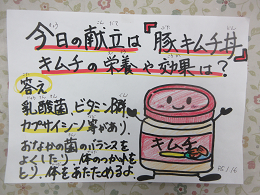 今日の献立は『豚キムチ丼』
キムチの栄養や効果は?
答え
乳酸菌、ビタミン群
カプサイシン等があり、
おなかの菌のバランスを
よくしたり、体のつかれを
とり、体をあたためるよ。
キムチ